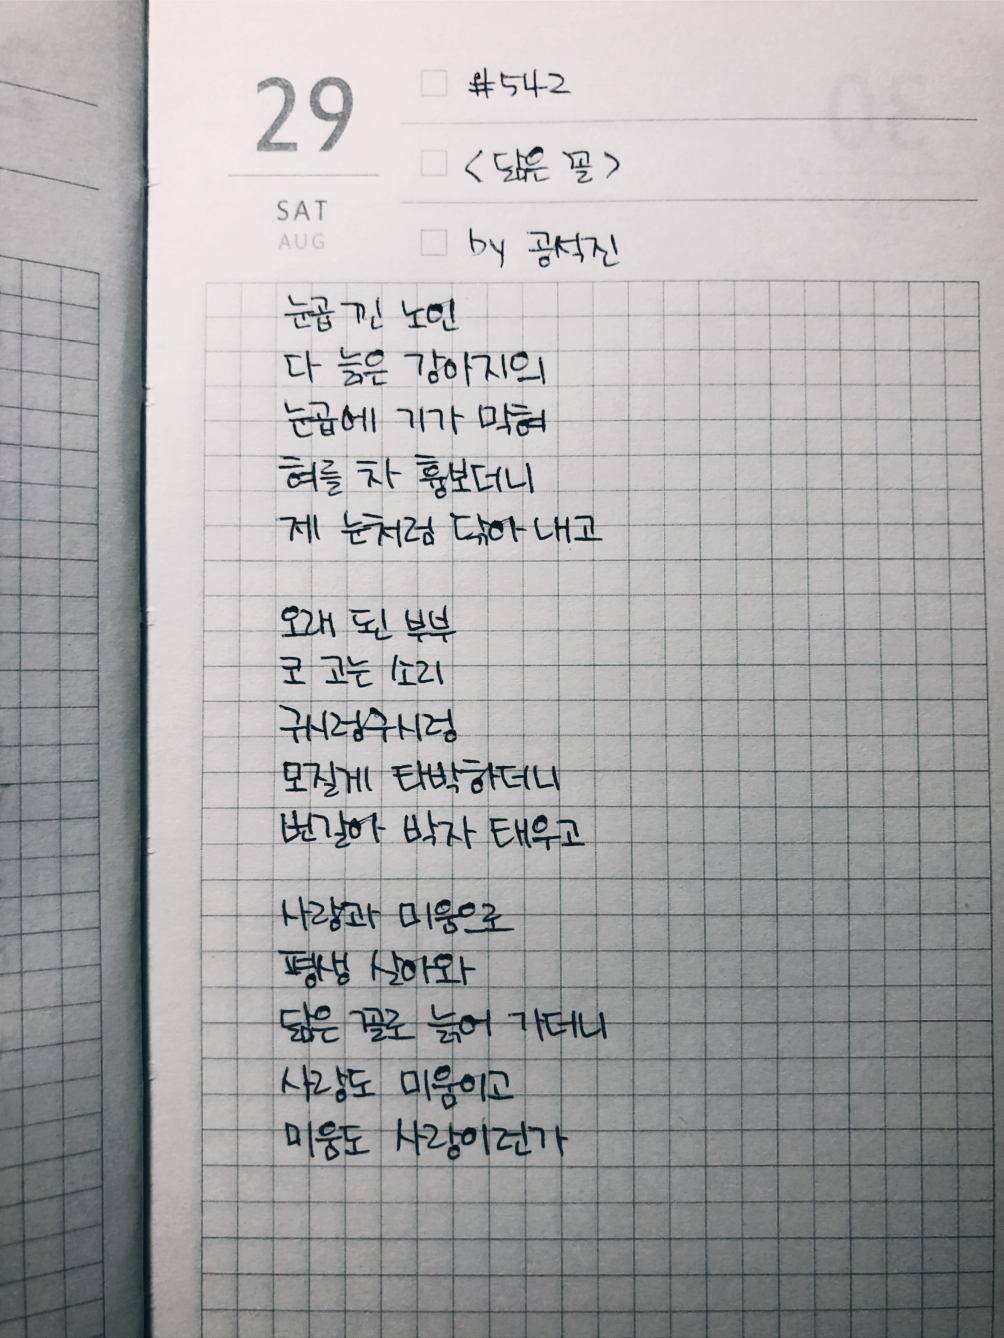 29
SAT
AUG
#542
<닮은 꼴>
by 공석진
눈곱 낀 노인
다 늙은 강아지의
눈곱에 기가 막혀
혀를 차 흉보더니
제 눈처럼 닦아 내고
오래 된 부부
코 고는 소리
귀시렁수시렁
모질게 타박하더니
번갈아 박자 태우고
사랑과 미움으로
평생 살아와
닮은 꼴로 늙어 가더니
사랑도 미움이고
미움도 사랑이런가
30